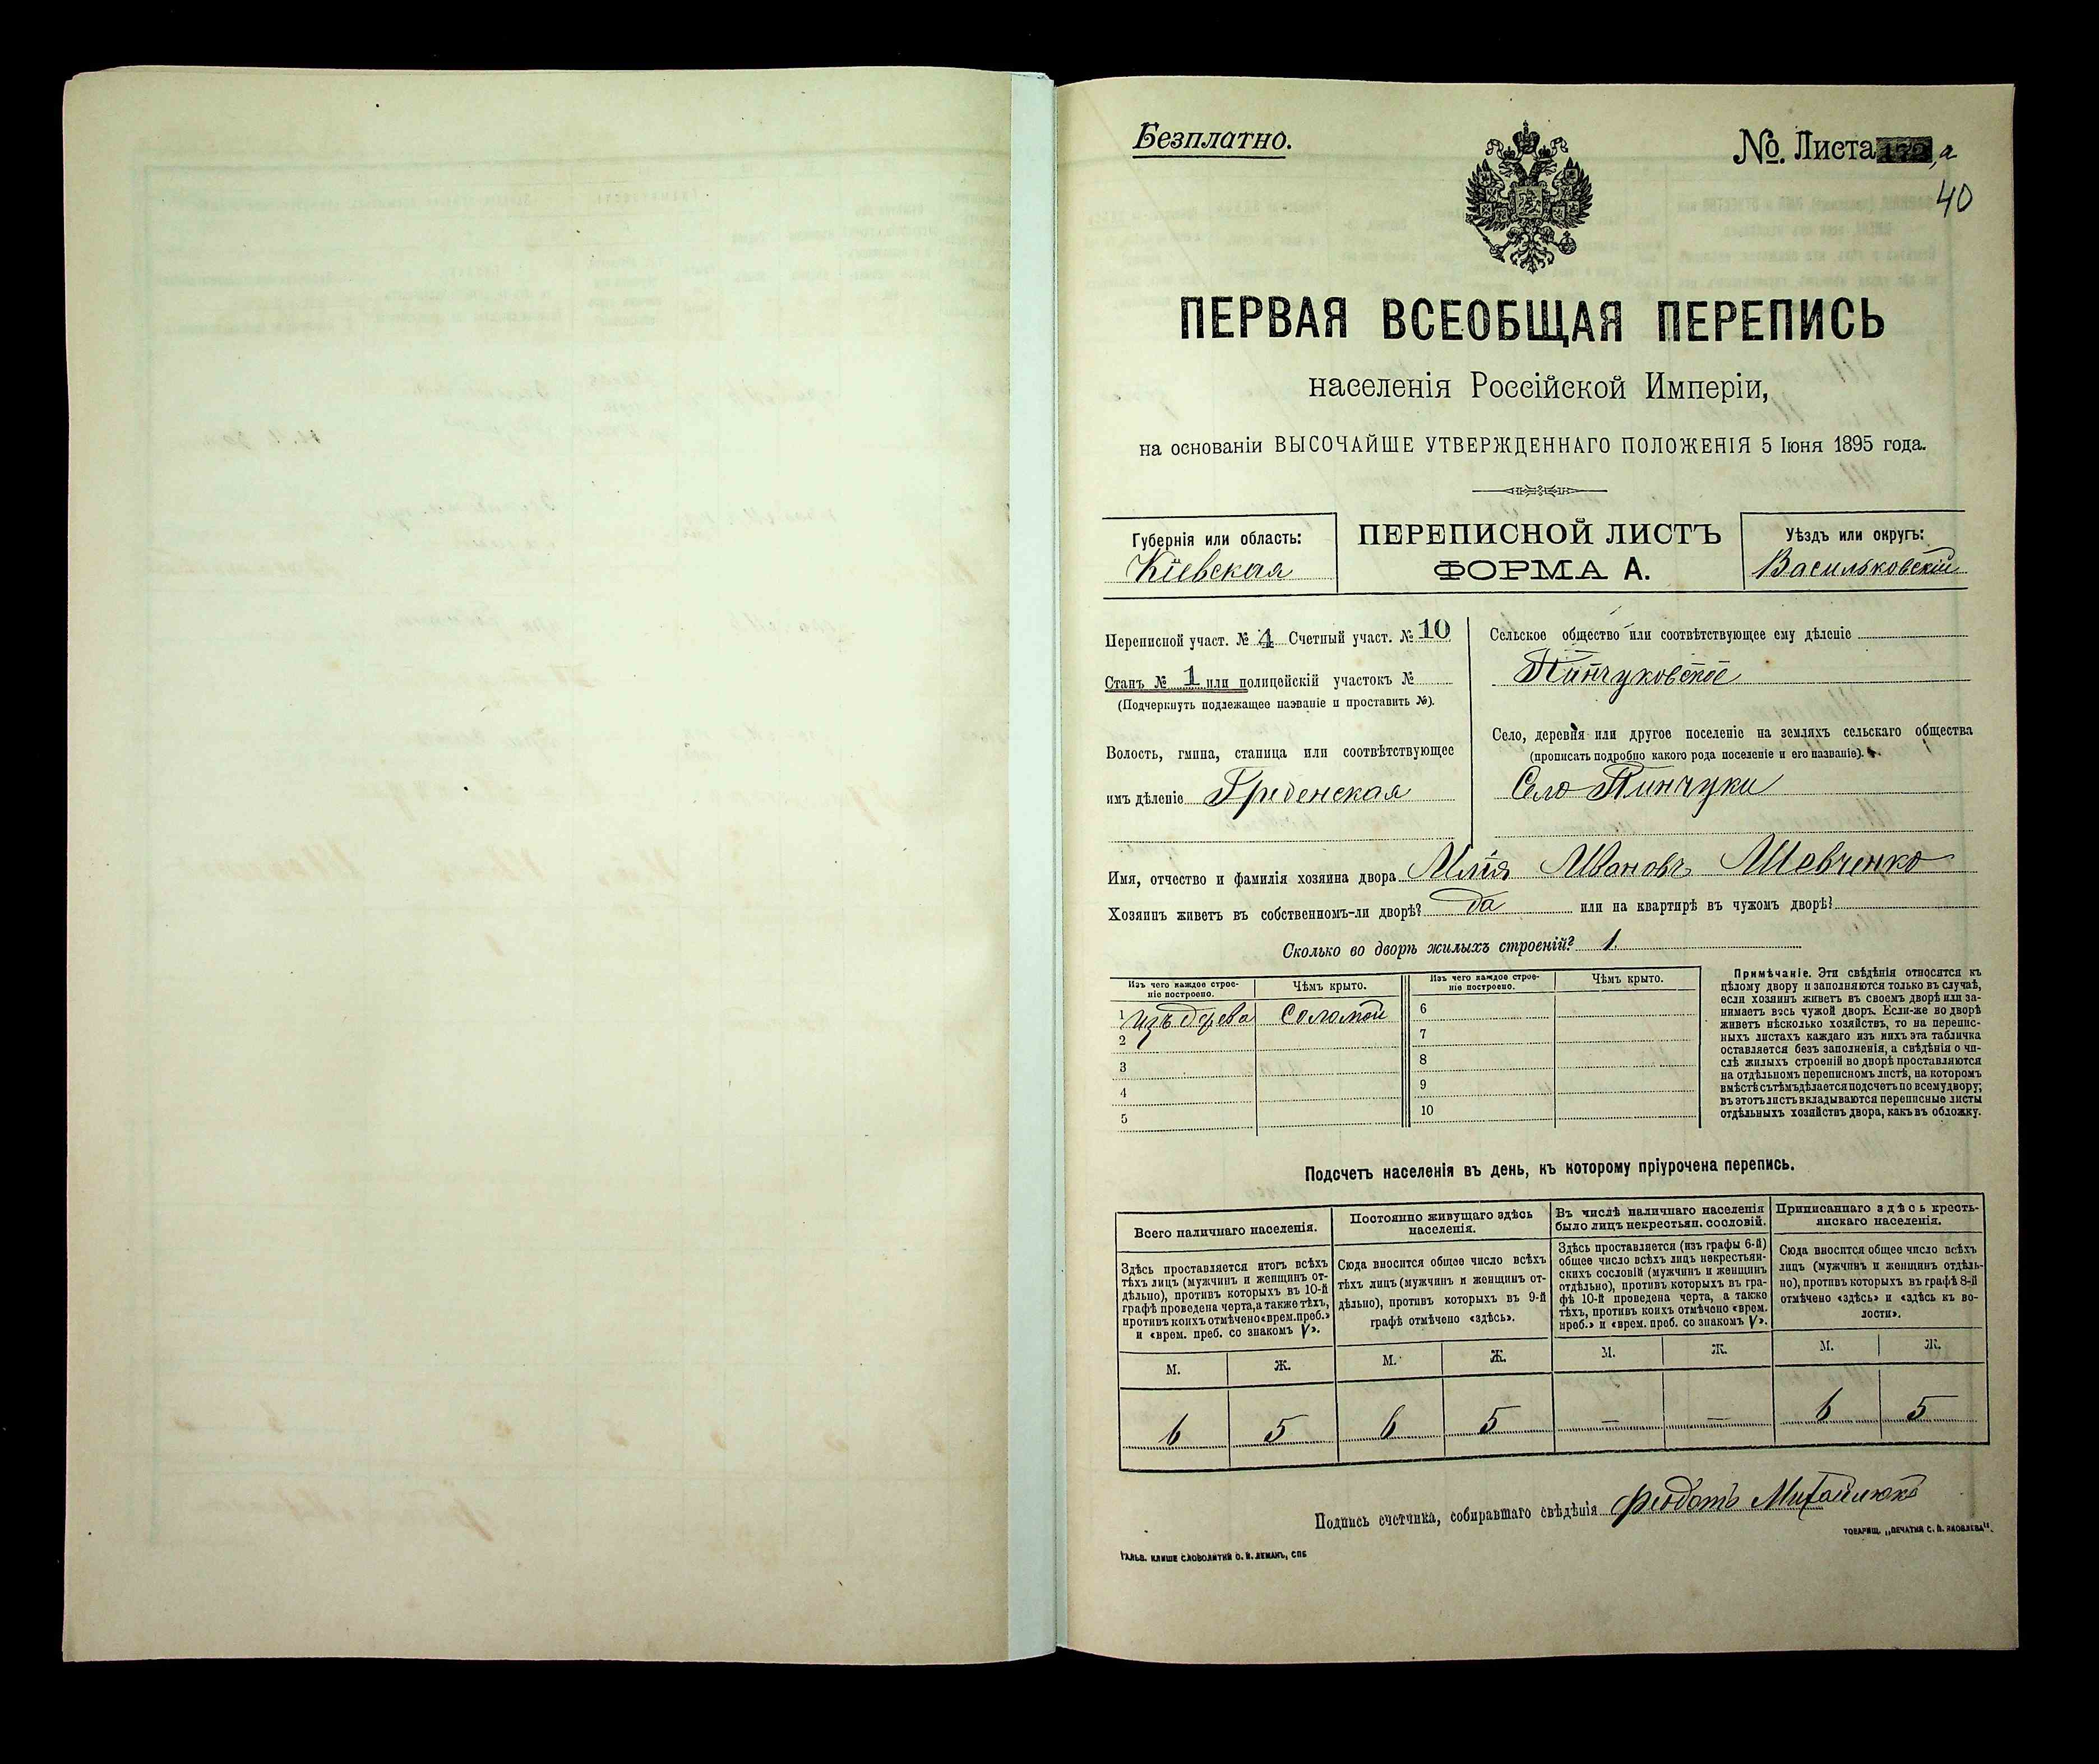 Безплатно.
№. Листа 172,а
40
ПЕРВАЯ ВСЕОБЩАЯ ПЕРЕПИСЬ
населенія Россійской Имперіи,
на основаніи ВЫСОЧАЙШЕ УТВЕРЖДЕННАГО ПОЛОЖЕНІЯ 5 Іюня 1895 года.
Губернія или область:
Кіевская
ПЕРЕПИСНОЙ ЛИСТЪ
ФОРМА А.
Уѣздъ или округъ:
Васильковскій
Переписной участ. № 4 Счетный участ. № 10
Станъ № 1 или полицейскій участокъ №
(Подчеркнуть подлежащее названіе и проставить №).
Волость, гмина, станица или соотвѣтствующее
имъ дѣленіе Гребенская
Сельское общество или соотвѣтствующее ему дѣленіе
Пинчуковское
Село, деревня или другое поселеніе на земляхъ сельскаго общества
(прописать подробно какого рода поселеніе и его названіе).
Село Пинчуки
Имя, отчество и фамилія хозяина двора Илія Ивановъ Шевченко
Хозяинъ живетъ въ собственномъ-ли дворѣ? да или на квартирѣ въ чужомъ дворѣ?
Сколько во дворѣ жилыхъ строеній? 1.
Изъ чего каждое строе-
ніе построено.
Чѣмъ крыто.
Изъ чего каждое строе-
ніе построено.
Чѣмъ крыто.
1 Изъ дерева Соломой 6
2 7
3 8
4 9
5 10
Примѣчаніе. Эти свѣдѣнія относятся къ
цѣлому двору и заполняются только въ случаѣ,
если хозяинъ живетъ въ своемъ дворѣ или за-
нимаетъ весь чужой дворъ. Если-же во дворѣ
живетъ нѣсколько хозяйствъ, то на перепис-
ныхъ листахъ каждаго изъ нихъ эта табличка
оставляется безъ заполненія, а свѣдѣнія о чи-
слѣ жилыхъ строеній во дворѣ проставляются
на отдѣльномъ переписномъ листѣ, на которомъ
вмѣстѣ съ тѣмъ дѣлается подсчетъ по всему двору;
въ этотъ листъ вкладываются переписные листы
отдѣльныхъ хозяйствъ двора, какъ въ обложку.
Подсчетъ населенія въ день, къ которому пріурочена перепись.
Всего наличнаго населенія.
Здѣсь проставляется итогъ всѣхъ
тѣхъ лицъ (мужчинъ и женщинъ от-
дѣльно), противъ которыхъ въ 10-й
графѣ проведена черта, а также тѣхъ,
противъ коихъ отмѣчено «врем. преб.»
и «врем. преб. со знакомъ V».
Постоянно живущаго здѣсь
населенія.
Сюда вносится общее число всѣхъ
тѣхъ лицъ (мужчинъ и женщинъ от-
дѣльно), противъ которыхъ въ 9-й
графѣ отмѣчено «здѣсь».
Въ числѣ наличнаго населенія
было лицъ некрестьян. сословій.
Здѣсь проставляется (изъ графы 6-й)
общее число всѣхъ лицъ некрестьян-
скихъ сословій (мужчинъ и женщинъ
отдѣльно), противъ которыхъ въ гра-
фѣ 10-й проведена черта, а также
тѣхъ, противъ коихъ отмѣчено «врем.
преб.» и «врем. преб. со знакомъ V».
Приписаннаго здѣсь кресть-
янскаго населенія.
Сюда вносится общее число всѣхъ
лицъ (мужчинъ и женщинъ отдѣль-
но), противъ которыхъ въ графѣ 8-й
отмѣчено «здѣсь» и «здѣсь къ во-
лости».
М. Ж. М. Ж. М. Ж. М. Ж.
6 5 6 5 — — 6 5
Подпись счетчика, собиравшаго свѣдѣнія Феодотъ Михайлюкъ
ГАЛЬВ. КЛИШЕ СЛОВОЛИТНИ О. И. ЛЕМАНЪ, СПБ
ТОВАРИЩ. „ПЕЧАТНЯ С. П. ЯКОВЛЕВА".